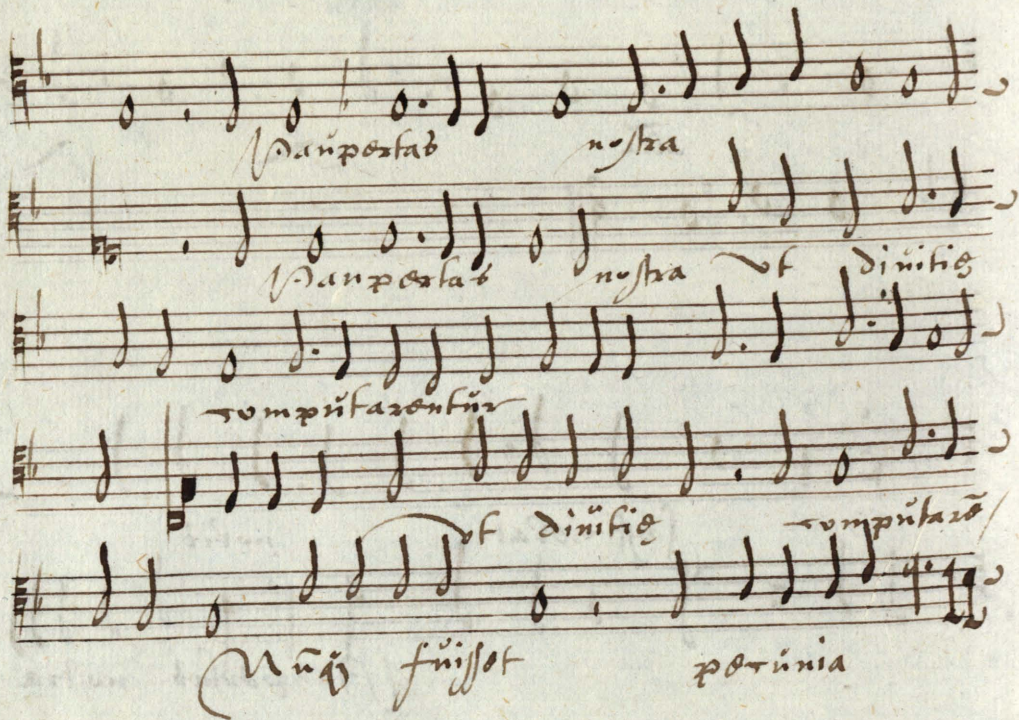 Paupertas nostra
Paupertas nostra ut divitię
computarentur
ut divitię computarē
Nūq̃ fuisset pecunia